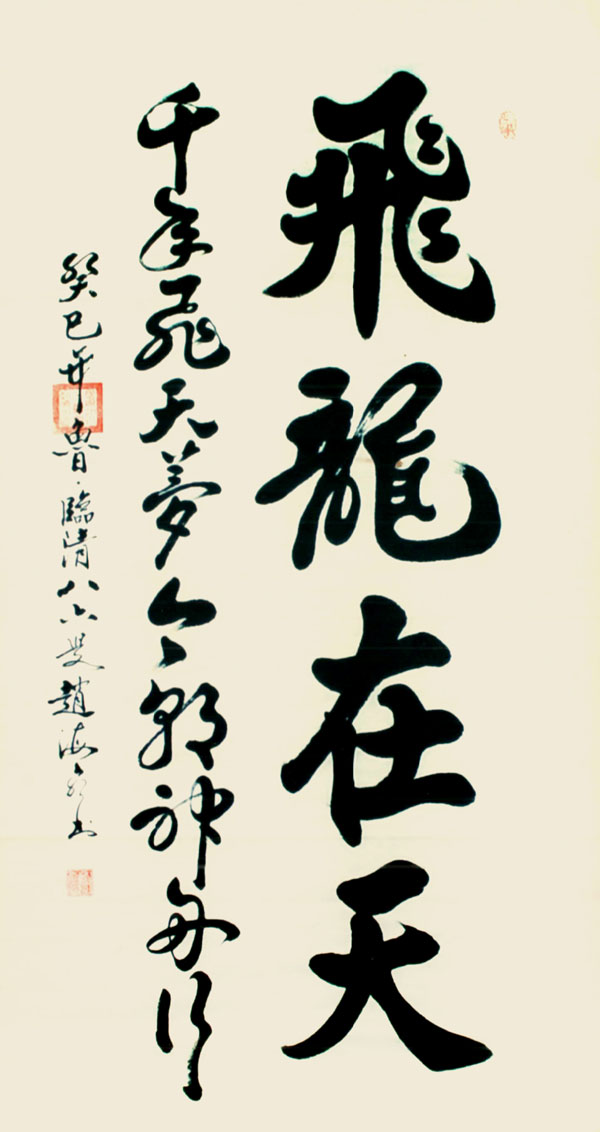 飛龍在天
千年飛天夢今朝神舟行
癸巳年魯·臨清八六叟趙海
書